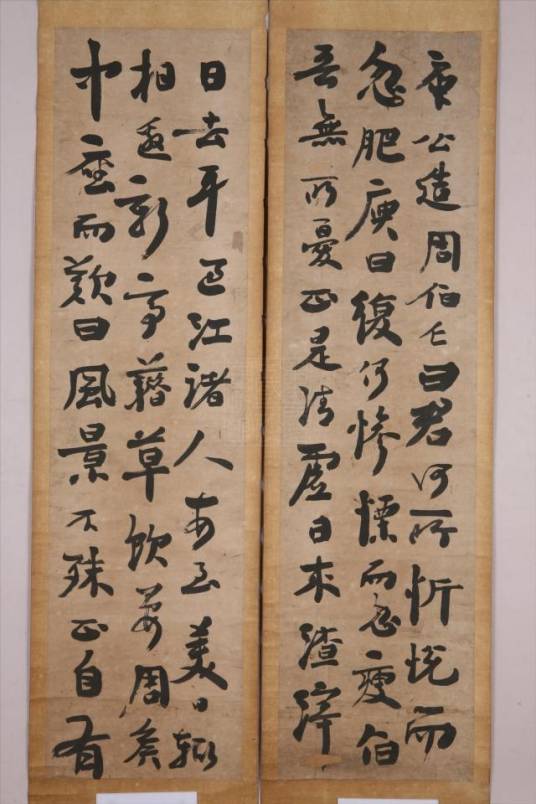 庾公造周伯仁曰君何所忻悅而
忽肥庾曰復何慘慄而忽瘦伯
吾無所憂正是清虛日來渣滓
日去耳過江諸人每至美日輒
相邀新亭藉草飲宴周侯
中座而歎曰風景不殊正自有